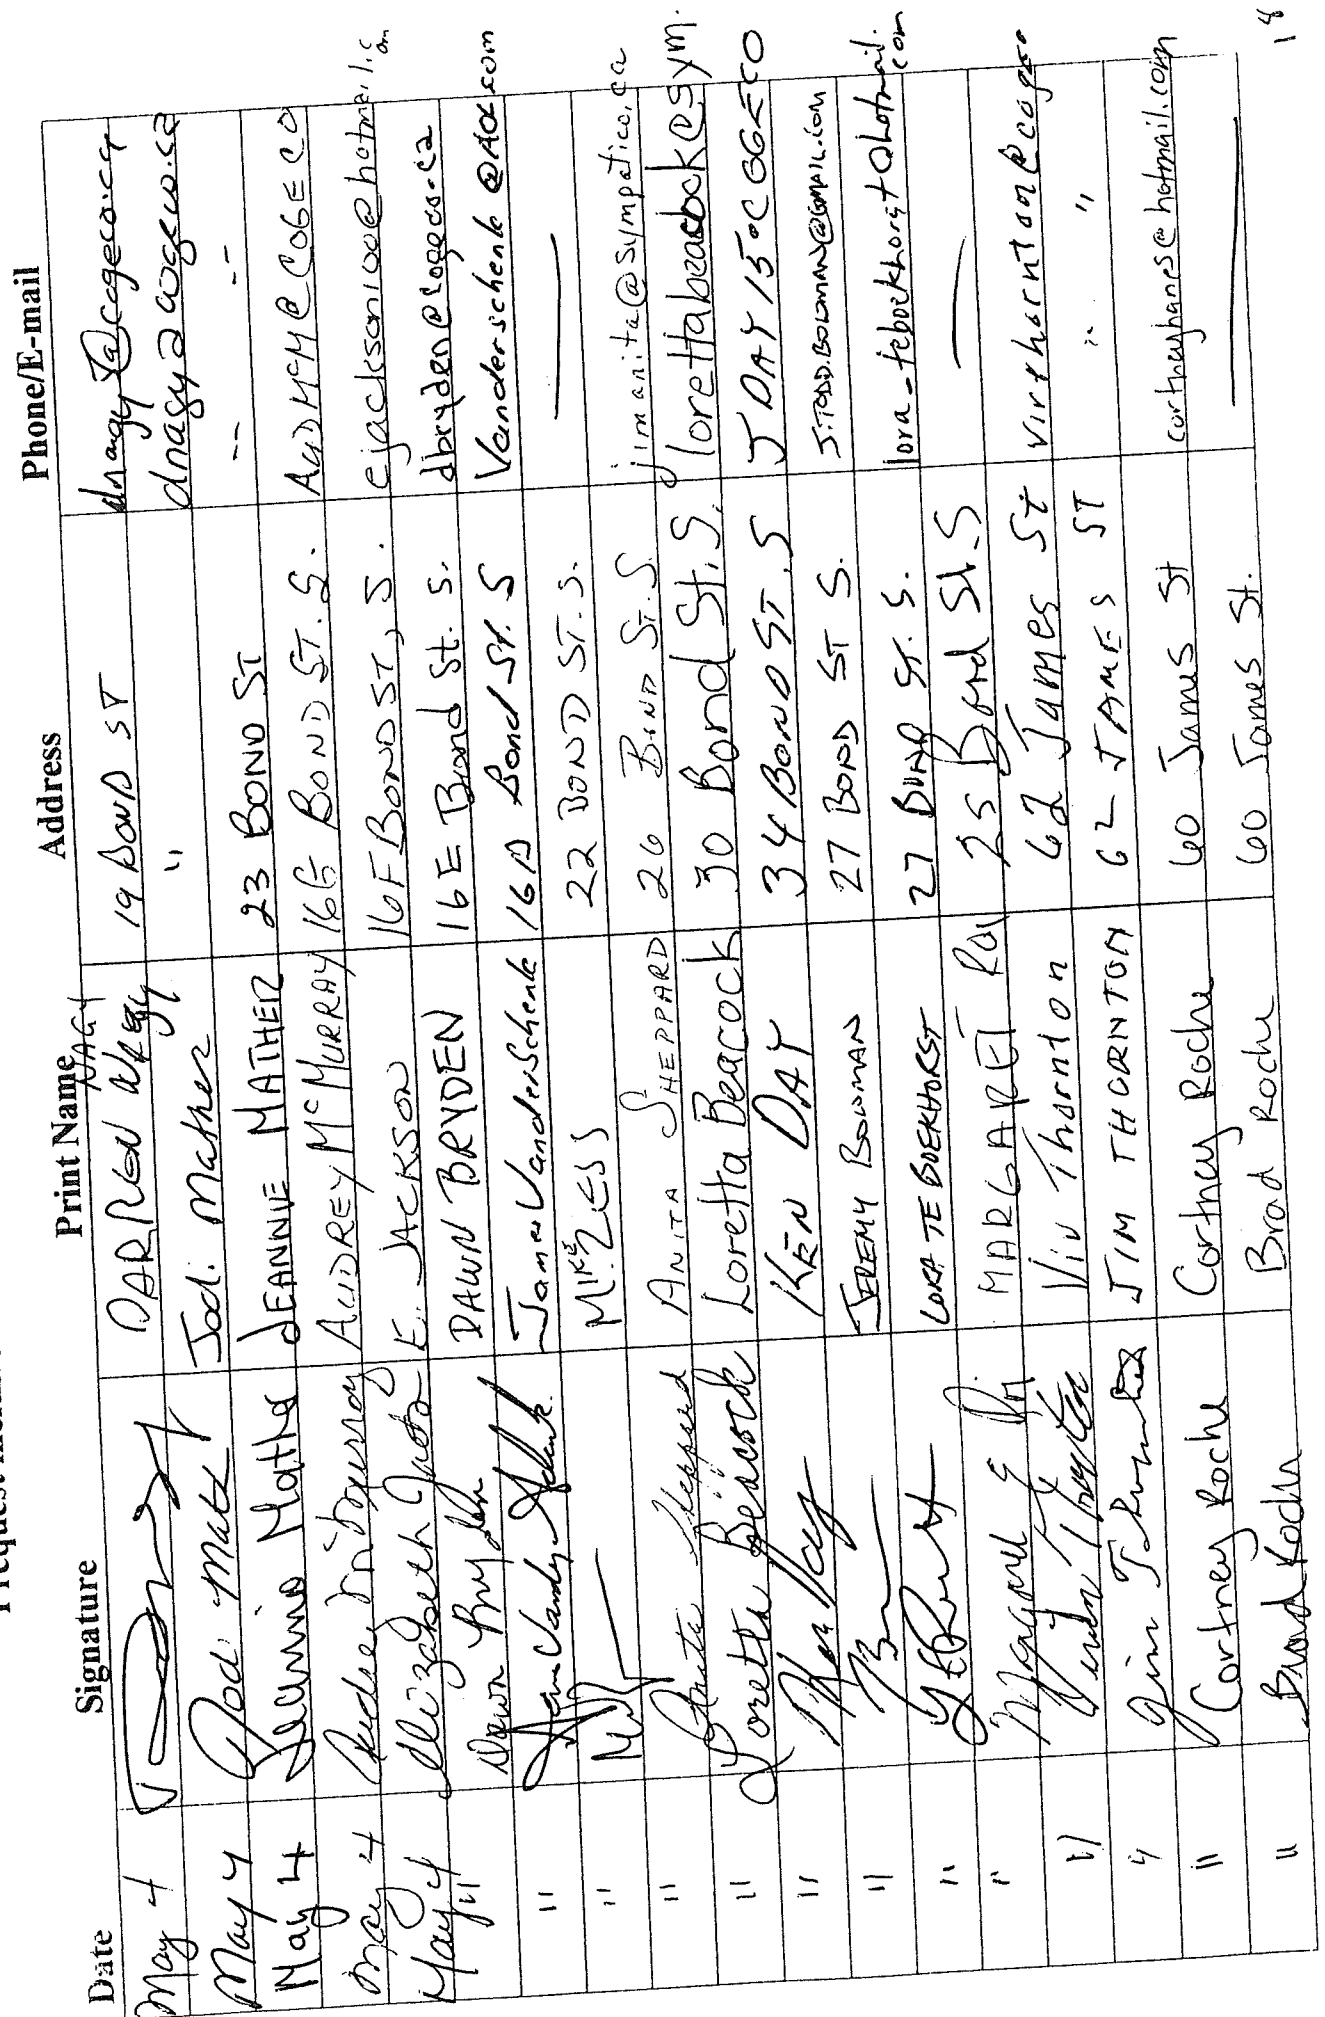 Date Signature Print Name Address Phone/E-mail
May 4 DARREN NAGY 19 BOND ST dnagy@cogeco.ca
May 4 Jodi Mather " dnagy2cogeco.ca
May 4 Jeanne Mather JEANNE MATHER 23 BOND ST -- --
May 4 Audrey McMurray AUDREY McMURRAY 16G BOND ST. S. AUDMCM@COGECO
May 4 Elizabeth Jackson E. JACKSON 16F BOND ST, S. ejackson100@hotmail.com
" Dawn Bryden DAWN BRYDEN 16E Bond St. S. dbryden@cogeco.ca
" James VanderSchenk 16A Bond St. S Vanderschenk@AOL.com
" MIKE ZESS 22 BOND ST. S. —
" Anita Sheppard ANITA SHEPPARD 26 BOND ST. S. jimanita@sympatico.ca
" Loretta Beacock Loretta Beacock 30 Bond St. S. lorettabeacock@sym.
" Ken Day KEN DAY 34 BOND ST. S J DAY 15 @COGECO
" JEREMY BOWMAN 27 BOND ST S. J.TODD.BOWMAN@GMAIL.COM
" LORA TE BOEKHORST 27 BOND ST. S. lora_teboekhorst@hotmail.com
" MARGARET 25 Bond St. S —
" Viv Thornton 62 James St vivthornton@cogeco
" Jim Thornton JIM THORNTON 62 JAMES ST " "
" Cortney Roche Cortney Roche 60 James St cortneyhanes@hotmail.com
" Brad Roche Brad Roche 60 James St. —
18